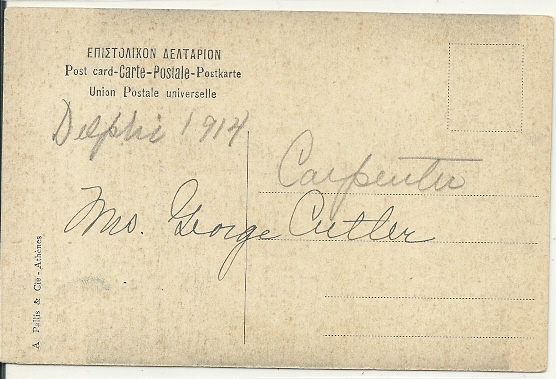 ΕΠΙΣΤΟΛΙΚΟΝ ΔΕΛΤΑΡΙΟΝ
Post card-Carte-Postale-Postkarte
Union Postale universelle
Delphi 1914
Carpenter
Mrs. George Cutler
A Pallis & Cie - Athènes